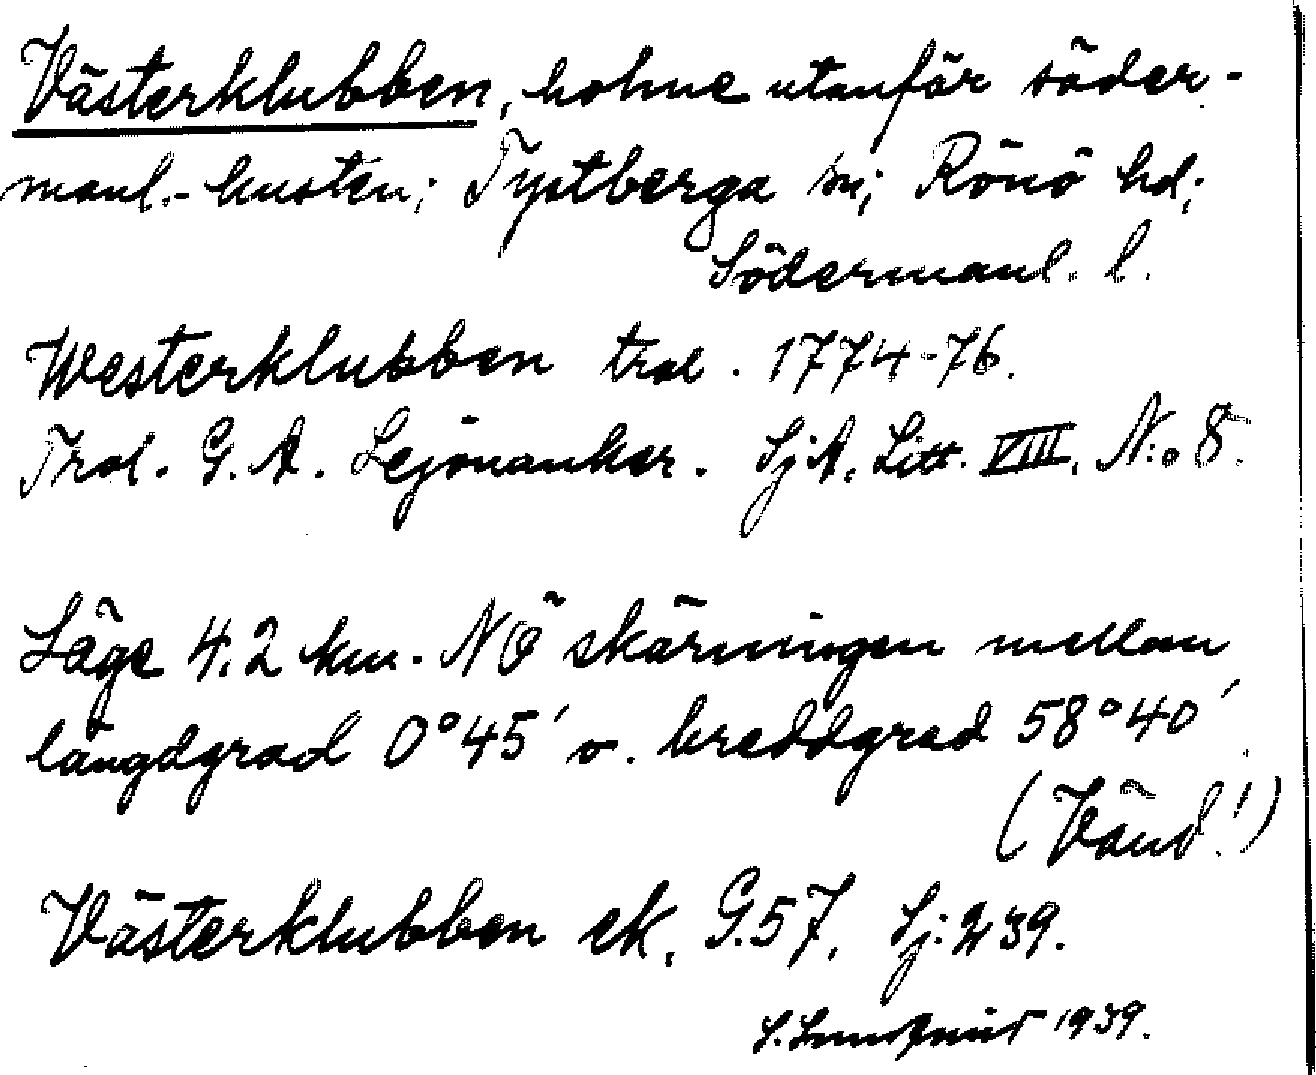 Västerklubben, holme utanför söder-
manl.-kusten; Tystberga sn; Rönö hd;
Södermanl. l.
Westerklubben trol. 1774-76.
Trol. G. A. Lejonanker. SjA. Litt. VIII. N:o 8.
Läge 4.2 km. NÖ skärningen mellan
längdgrad 0°45' o. breddgrad 58°40'
(Vänd!)
Västerklubben ek. G.57. Sj: 239.
S. Lundqvist 1939.